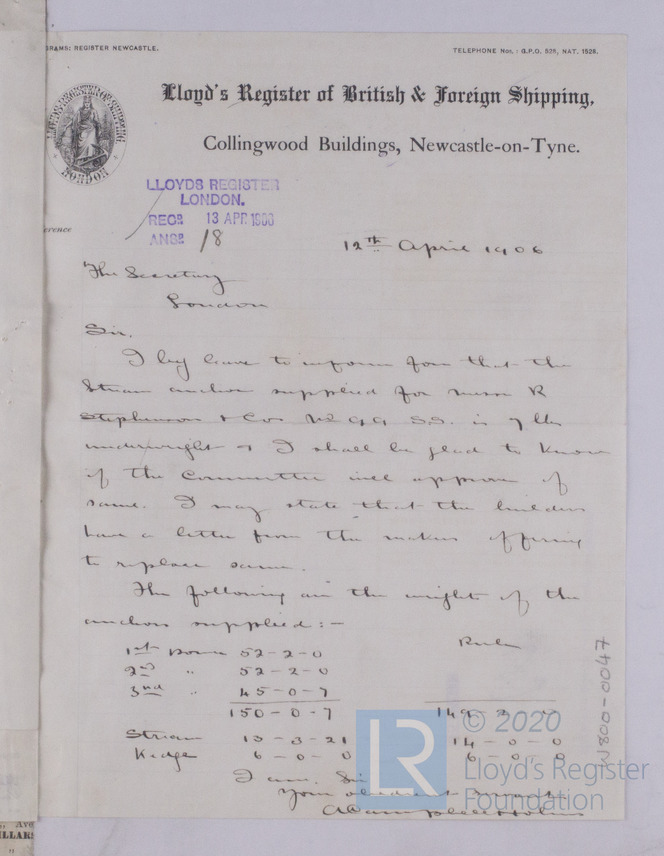 GRAMS: REGISTER NEWCASTLE.
TELEPHONE Nos. : G.P.O. 525, NAT. 1528.
Lloyd's Register of British & Foreign Shipping,
Collingwood Buildings, Newcastle-on-Tyne.
LONDON
LLOYDS REGISTER
LONDON.
RECD 13 APR 1906
ANSD 18
erence
12th April 1906
The Secretary
London
Sir,
I beg leave to inform you that the
Stream anchor supplied for Messrs R
Stephenson & Cos No 99 S.S. is 7 lbs
underweight & I shall be glad to know
if the Committee will approve of
same. I may state that the builders
have a letter from the makers offering
to replace same.
The following are the weights of the
anchors supplied :-
Rules
1st Bower 52-2-0
2nd " 52-2-0
3rd " 45-0-7
150-0-7 149-2-0
Stream 13-3-21 14-0-0
Kedge 6-0-0 6-0-0
I am, Sir
Your obedient Servant
W800-0047
LR
© 2020
Lloyd's Register
Foundation